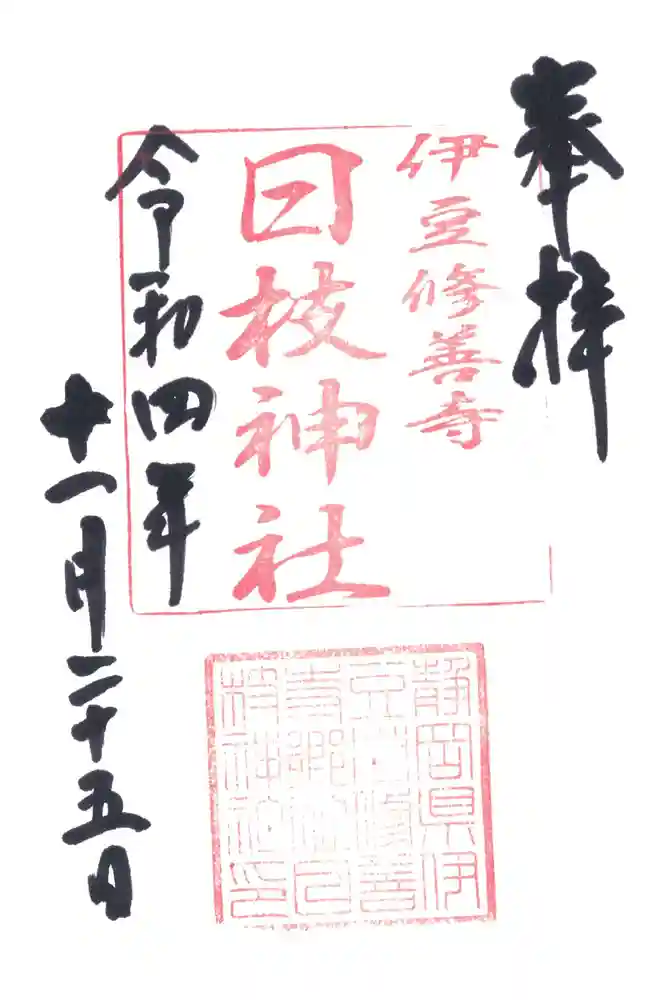 奉拝
伊豆修善寺
日枝神社
令和四年
十一月二十五日
静岡県伊
豆市修善
寺鄉社日
枝神社印